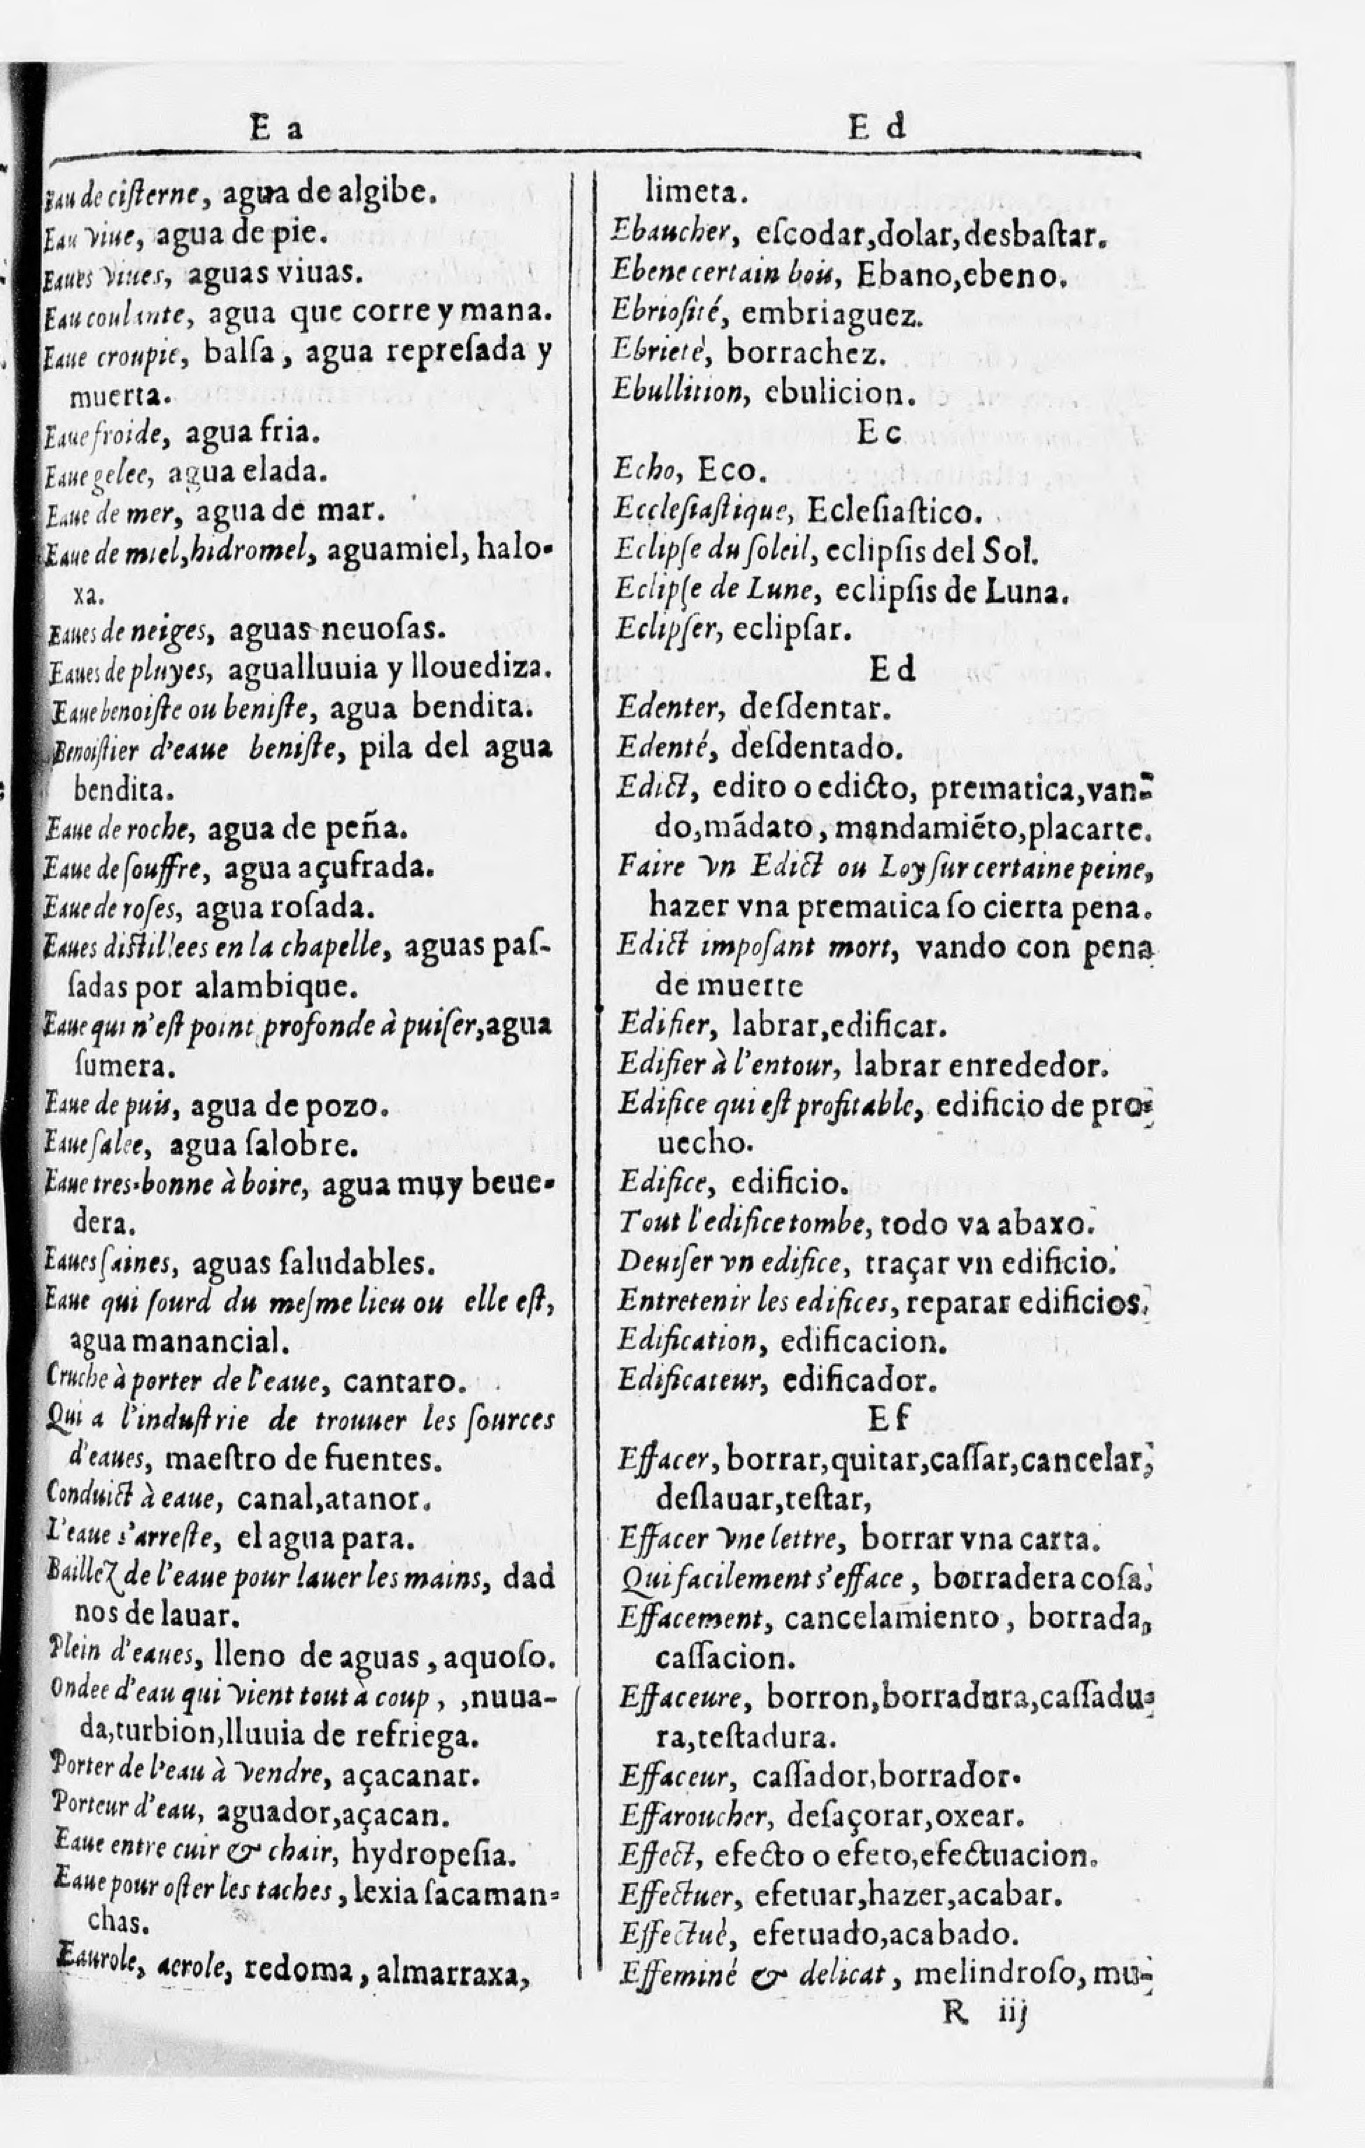 E a
Eau de ciſterne, agua de algibe.
Eau viue, agua de pie.
Eaues viues, aguas viuas.
Eau coulante, agua que corre y mana.
Eaue croupie, balſa, agua repreſada y
muerta.
Eaue froide, agua fria.
Eaue gelee, agua elada.
Eaue de mer, agua de mar.
Eaue de miel, hidromel, aguamiel, halo-
xa.
Eaues de neiges, aguas neuoſas.
Eaues de pluyes, agualluuia y llouediza.
Eaue benoiſte ou beniſte, agua bendita.
Benoiſtier d'eaue beniſte, pila del agua
bendita.
Eaue de roche, agua de peña.
Eaue de ſouffre, agua açufrada.
Eaue de roſes, agua roſada.
Eaues distillees en la chapelle, aguas paſ-
ſadas por alambique.
Eaue qui n'eſt point profonde à puiſer, agua
ſumera.
Eaue de puis, agua de pozo.
Eaue ſalee, agua ſalobre.
Eaue tres-bonne à boire, agua muy beue-
dera.
Eaues ſaines, aguas ſaludables.
Eaue qui ſourd du meſme lieu ou elle eſt,
agua manancial.
Cruche à porter de l'eaue, cantaro.
Qui a l'induſtrie de trouuer les ſources
d'eaues, maeſtro de fuentes.
Conduict à eaue, canal, atanor.
L'eaue s'arreſte, el agua para.
Baillez de l'eaue pour lauer les mains, dad
nos de lauar.
Plein d'eaues, lleno de aguas, aquoſo.
Ondee d'eau qui vient tout à coup, ,nuua-
da, turbion, lluuia de refriega.
Porter de l'eau à vendre, açacanar.
Porteur d'eau, aguador, açacan.
Eaue entre cuir & chair, hydropeſia.
Eaue pour oſter les taches, lexia ſacaman-
chas.
Eaurole, aerole, redoma, almarraxa,
E d
limeta.
Ebaucher, eſcodar, dolar, desbaſtar.
Ebene certain bois, Ebano, ebeno.
Ebrioſité, embriaguez.
Ebrieté, borrachez.
Ebullition, ebulicion.
E c
Echo, Eco.
Eccleſiaſtique, Ecleſiaſtico.
Eclipſe du ſoleil, eclipſis del Sol.
Eclipſe de Lune, eclipſis de Luna.
Eclipſer, eclipſar.
E d
Edenter, deſdentar.
Edenté, deſdentado.
Edict, edito o edicto, prematica, van-
do, mãdato, mandamiẽto, placarte.
Faire vn Edict ou Loy ſur certaine peine,
hazer vna prematica ſo cierta pena.
Edict impoſant mort, vando con pena
de muerte
Edifier, labrar, edificar.
Edifier à l'entour, labrar enrededor.
Edifice qui eſt profitable, edificio de pro-
uecho.
Edifice, edificio.
Tout l'edifice tombe, todo va abaxo.
Deuiſer vn edifice, traçar vn edificio.
Entretenir les edifices, reparar edificios.
Edification, edificacion.
Edificateur, edificador.
E f
Effacer, borrar, quitar, caſſar, cancelar,
deſlauar, teſtar,
Effacer vne lettre, borrar vna carta.
Qui facilement s'efface, borradera coſa.
Effacement, cancelamiento, borrada,
caſſacion.
Effaceure, borron, borradura, caſſadu-
ra, teſtadura.
Effaceur, caſſador, borrador.
Effaroucher, deſaçorar, oxear.
Effect, efecto o efeto, efectuacion.
Effectuer, efetuar, hazer, acabar.
Effectué, efetuado, acabado.
Effeminé & delicat, melindroſo, mu-
R iij